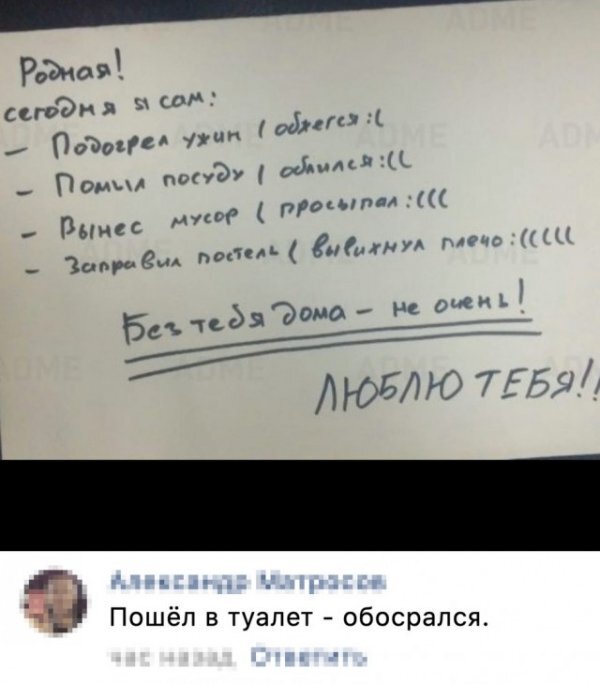 Родная!
сегодня я сам:
– Подогрел ужин ( обжегся :(
– Помыл посуду ( облился :((
– Вынес мусор ( просыпал :(((
– Заправил постель ( вывихнул плечо :(((((
Без тебя дома – не очень!
ЛЮБЛЮ ТЕБЯ!!
Александр Матросов
Пошёл в туалет - обосрался.
час назад Ответить